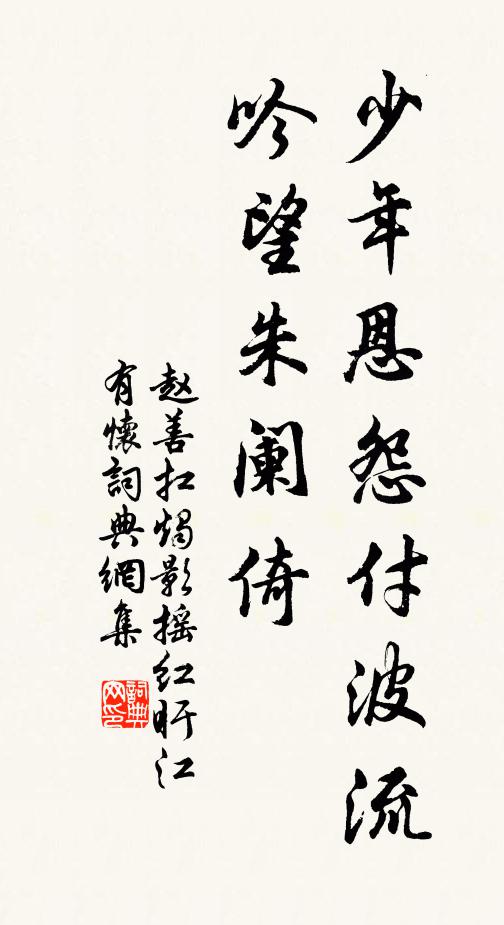 少年恩怨付波流
吟望朱阑倚
赵善扛烛影摇红盱江
有懷詞典網集
詞典
网印